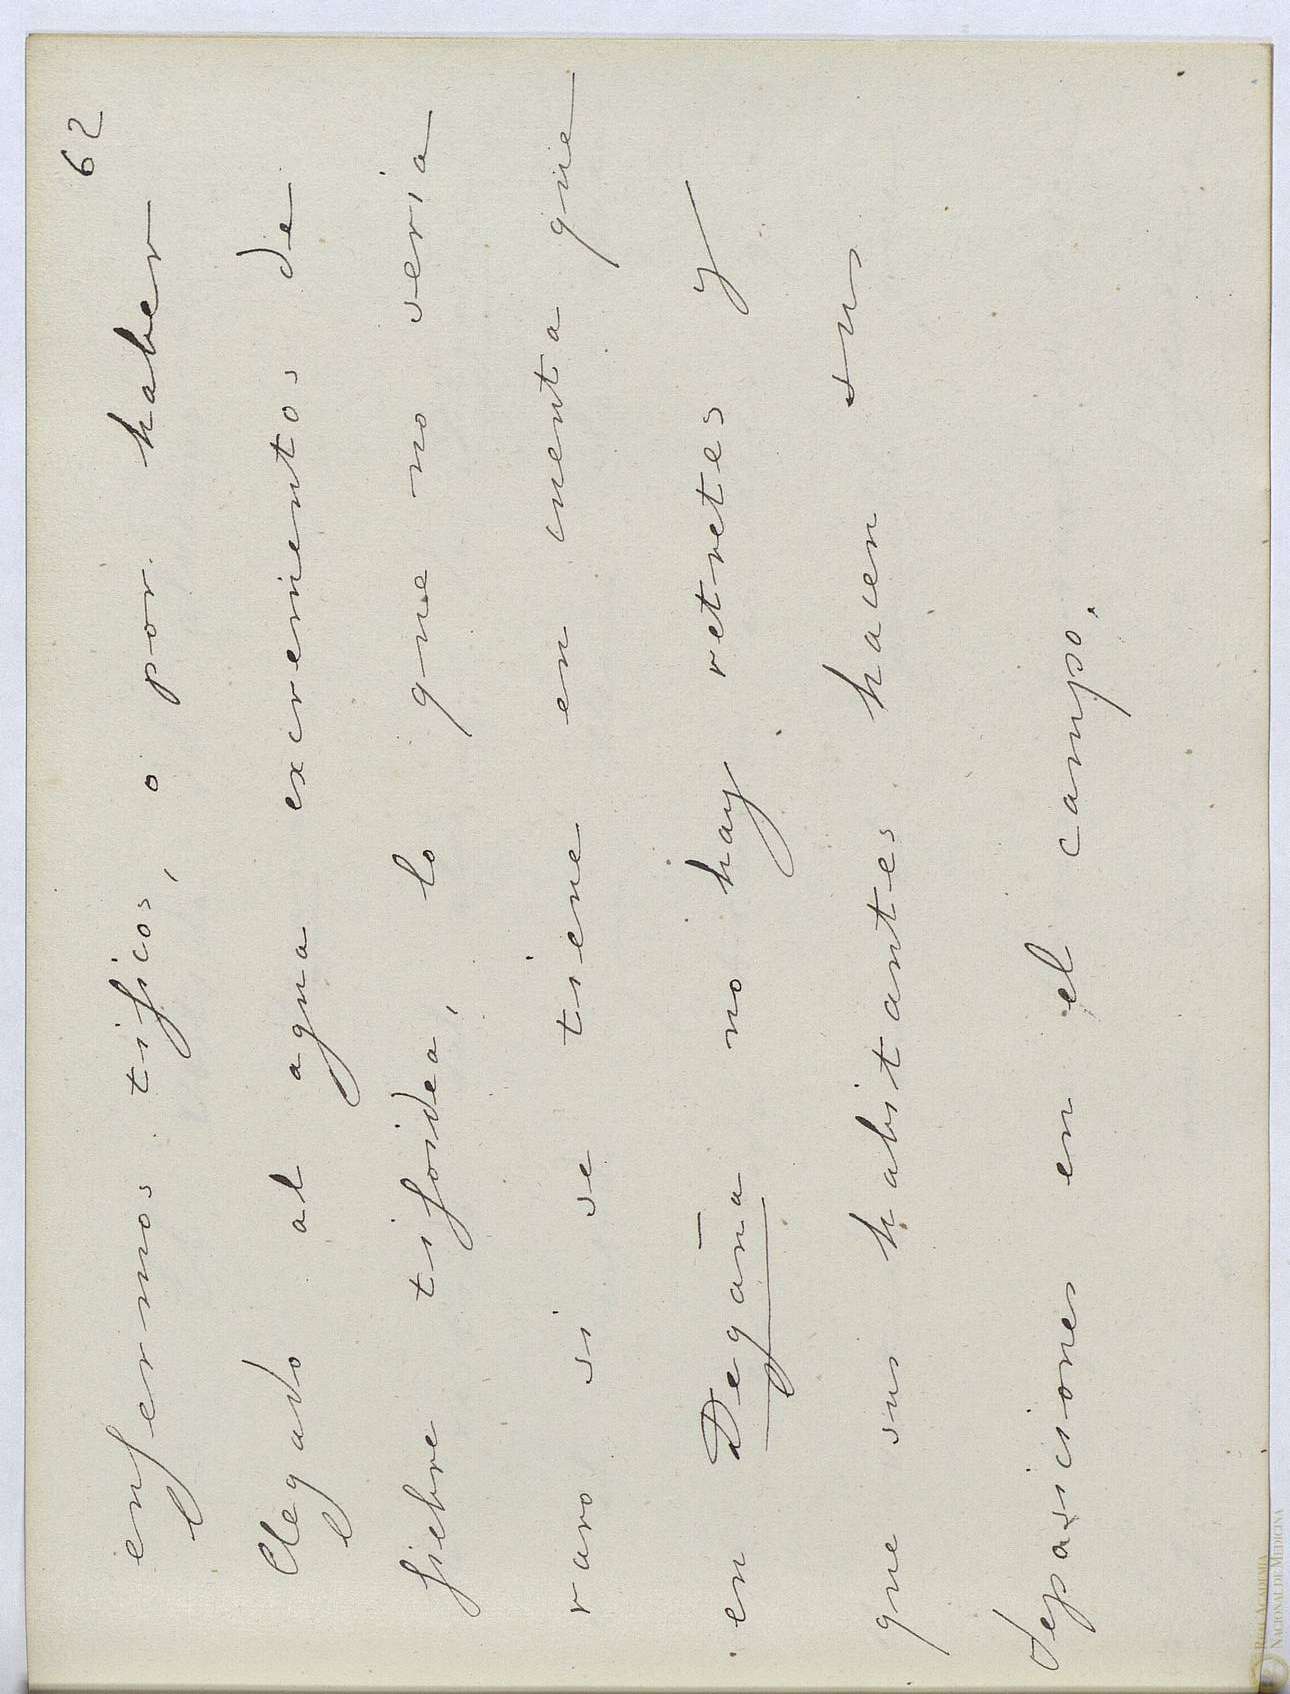 62
enfermos tificos, ó por haber
llegado al agua excrementos de
fiebre tifoidea, lo que no seria
raro si se tiene en cuenta que
en Degaña no hay retretes y
que sus habitantes hacen sus
deposiciones en el campo.
REAL ACADEMIA
NACIONAL DE MEDICINA